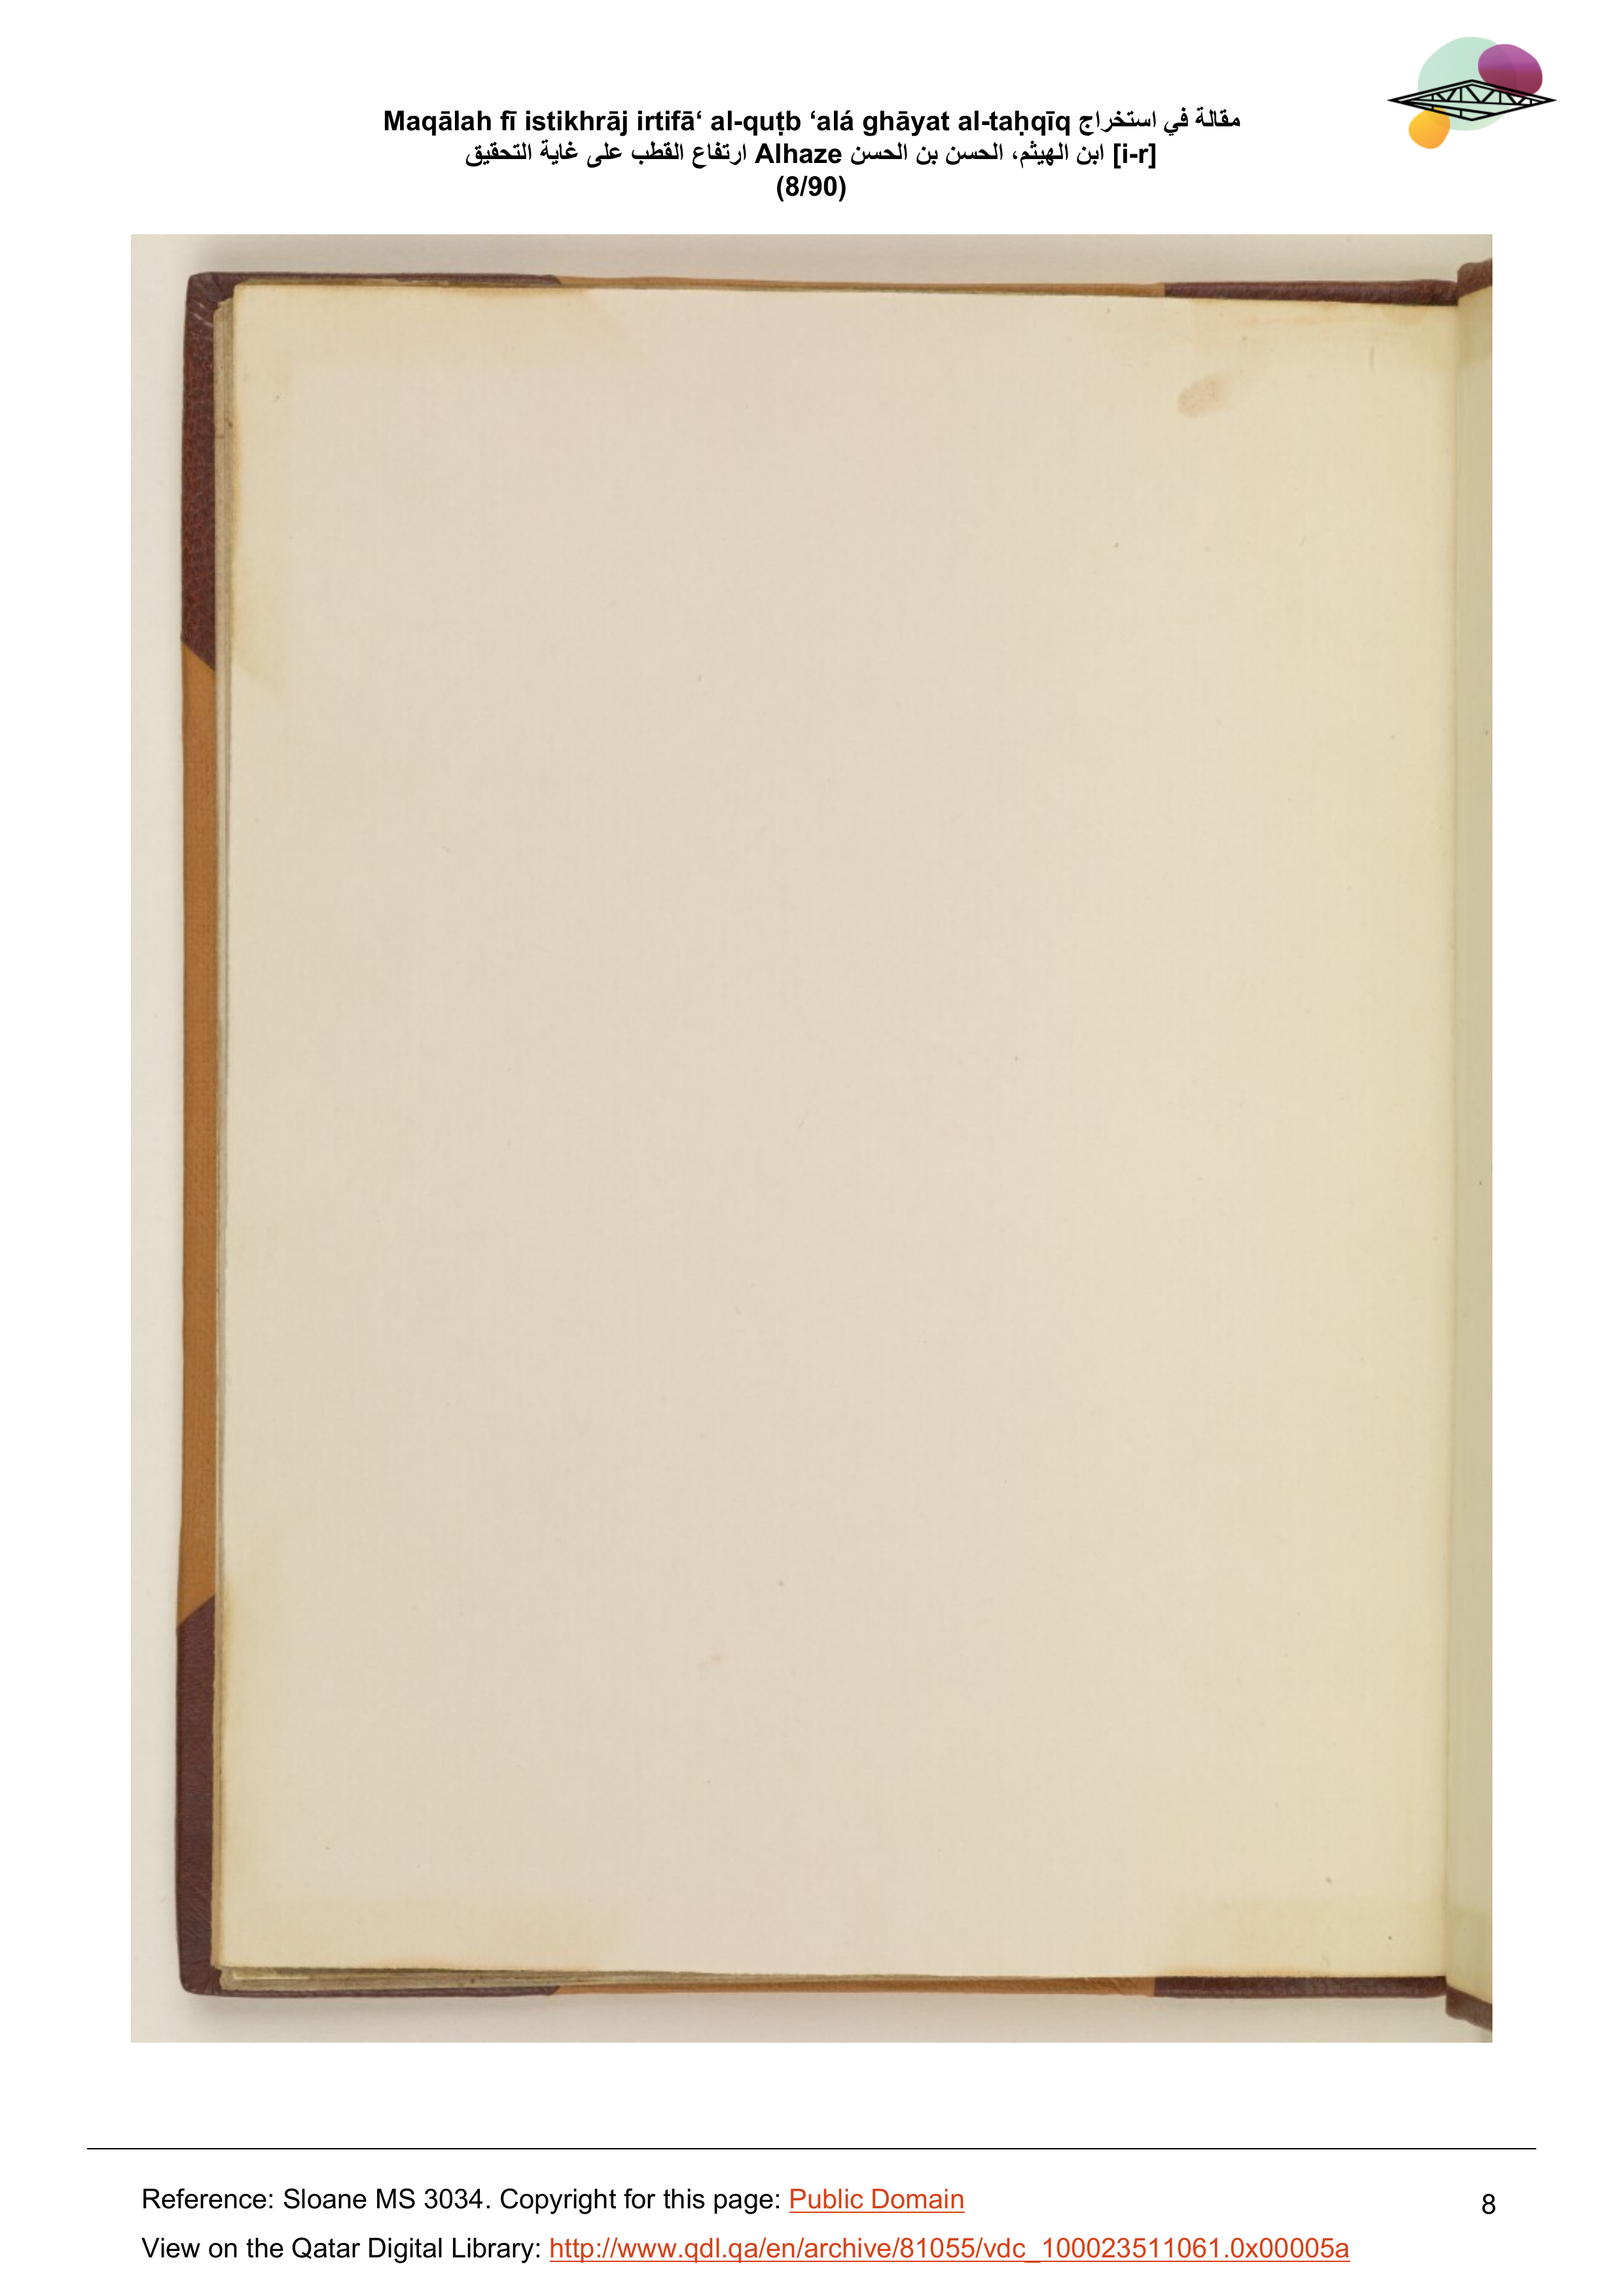 Maqālah fī istikhrāj irtifā‘ al-quṭb ‘alá ghāyat al-taḥqīq مقالة في استخراج
ارتفاع القطب على غاية التحقيق Alhaze ابن الهيثم، الحسن بن الحسن [i-r]
(8/90)
Reference: Sloane MS 3034. Copyright for this page: Public Domain
8
View on the Qatar Digital Library: http://www.qdl.qa/en/archive/81055/vdc_100023511061.0x00005a